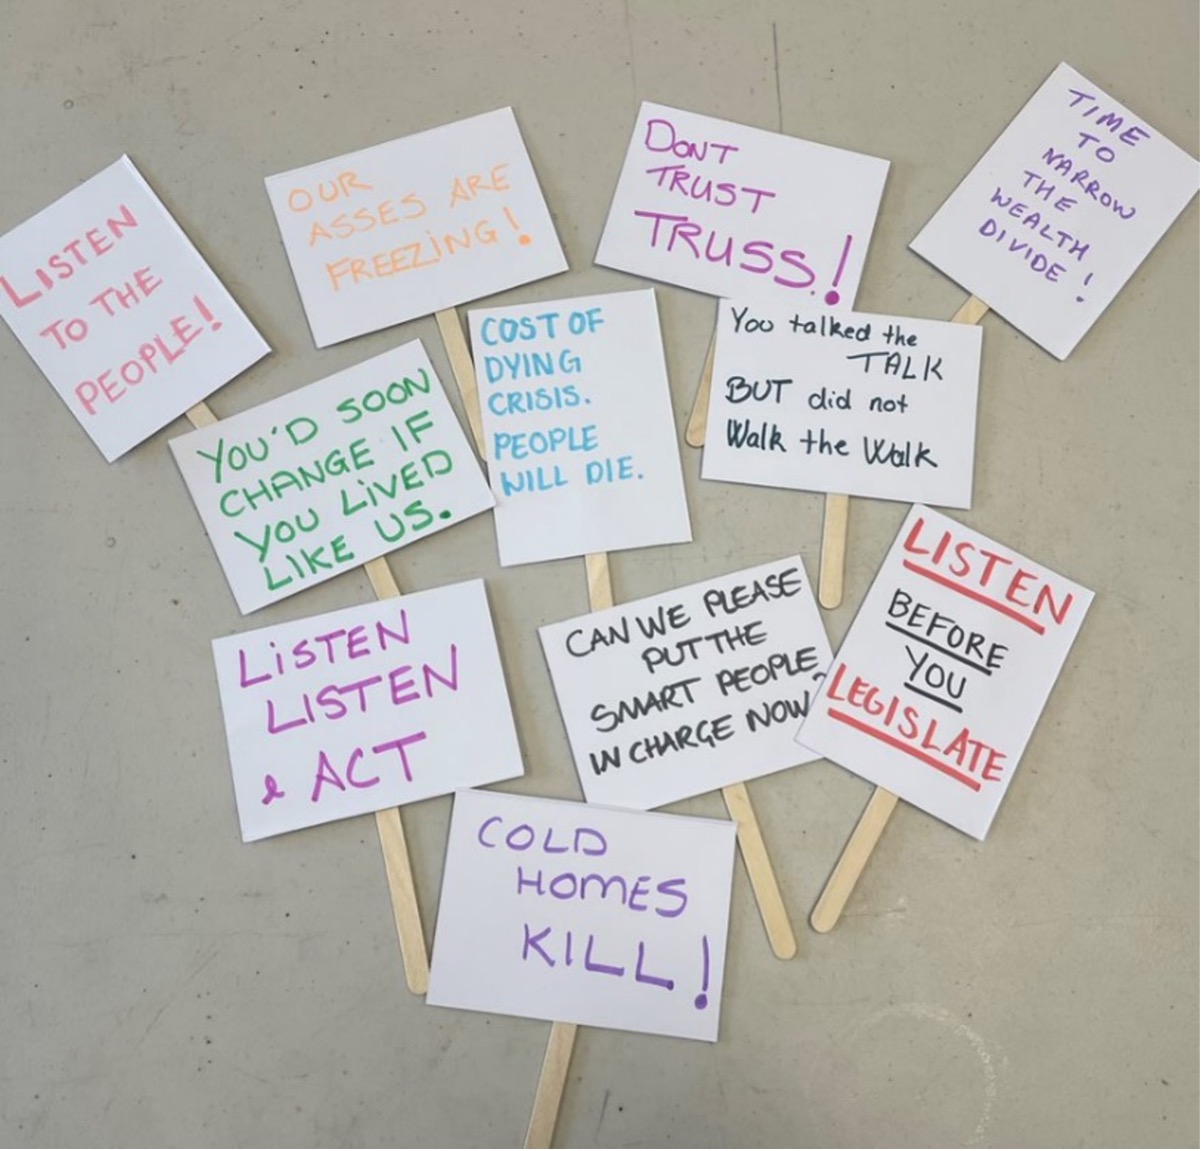 LISTEN
TO THE
PEOPLE!
OUR
ASSES ARE
FREEZING!
DONT
TRUST
TRUSS.!
TIME
TO
NARROW
THE
WEALTH
DIVIDE!
YOU'D SOON
CHANGE IF
YOU LIVED
LIKE US.
COST OF
DYING
CRISIS.
PEOPLE
WILL DIE.
You talked the
TALK
BUT did not
Walk the Walk
LISTEN
LISTEN
& ACT
CAN WE PLEASE
PUT THE
SMART PEOPLE
IN CHARGE NOW?
LISTEN
BEFORE
YOU
LEGISLATE
COLD
HOMES
KILL!